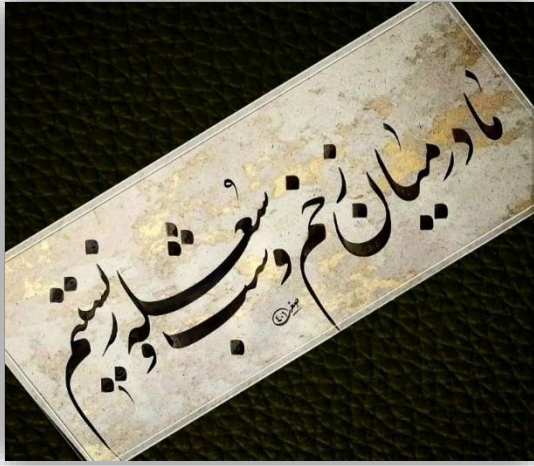 ما در میان زخم و شب و شعله زیستیم